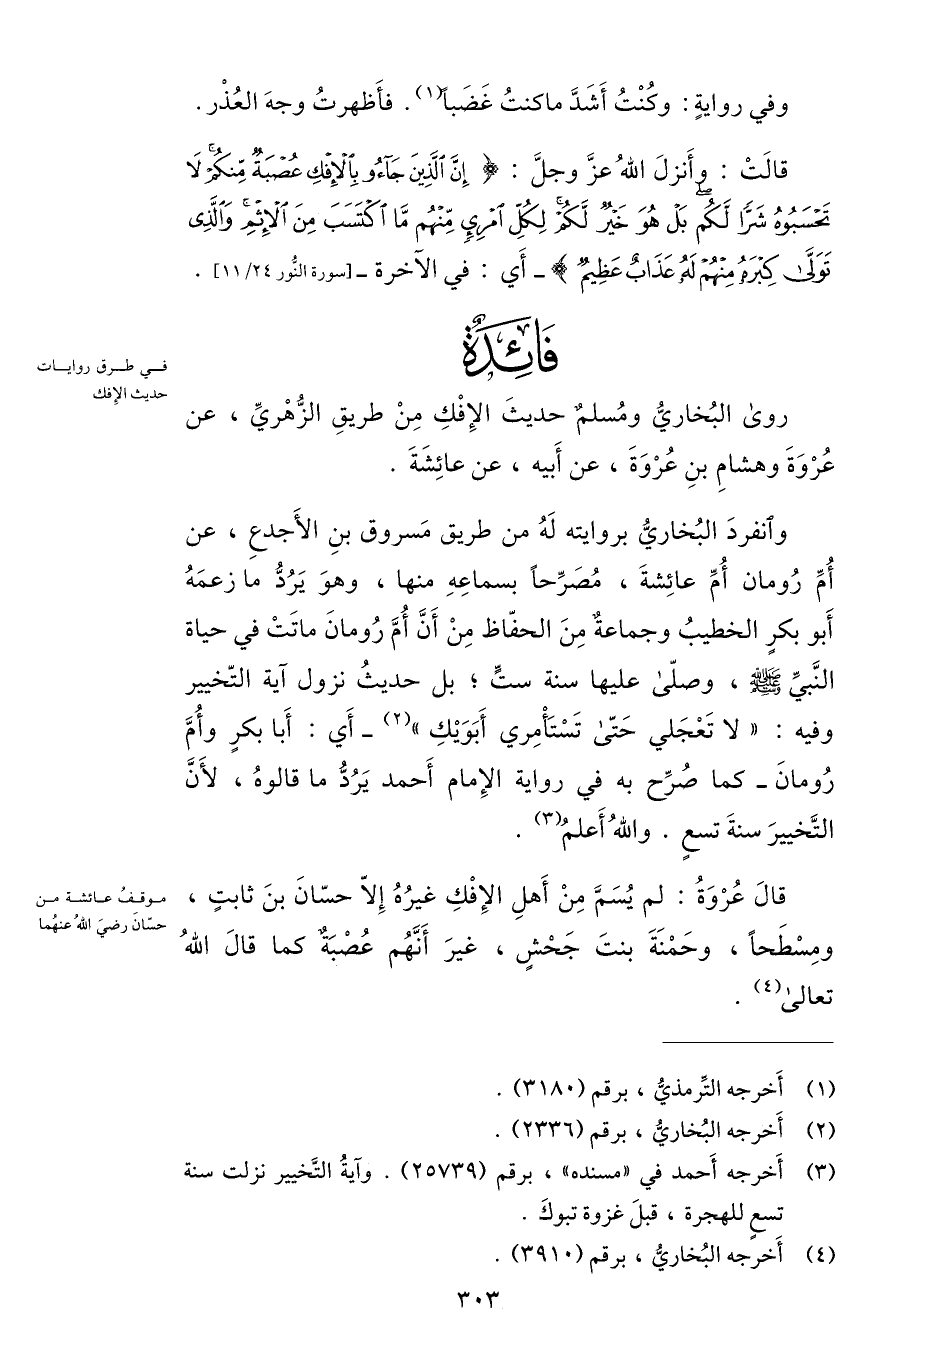 وفي روايةٍ : وكُنْتُ أَشَدَّ ماكنتُ غَضَباً(١). فأَظهرتُ وجهَ العُذْر .
قالَتْ : وأَنزلَ اللهُ عزَّ وجلَّ : ﴿ إِنَّ ٱلَّذِينَ جَآءُو بِٱلْإِفْكِ عُصْبَةٌ مِّنكُمْ ۚ لَا
تَحْسَبُوهُ شَرًّا لَّكُم ۖ بَلْ هُوَ خَيْرٌ لَّكُمْ ۚ لِكُلِّ ٱمْرِئٍ مِّنْهُم مَّا ٱكْتَسَبَ مِنَ ٱلْإِثْمِ ۚ وَٱلَّذِى
تَوَلَّىٰ كِبْرَهُۥ مِنْهُمْ لَهُۥ عَذَابٌ عَظِيمٌ ﴾ ـ أَي : في الآخرة ـ [سورة النُّور ٢٤/ ١١] .
فَائِدَةٌ
في طرق روايات
حديث الإِفك
روىٰ البُخاريُّ ومُسلمٌ حديثَ الإِفْكِ مِنْ طريقِ الزُّهْريِّ ، عن
عُرْوَةَ وهشامِ بنِ عُرْوَةَ ، عن أَبيه ، عن عائِشَةَ .
وٱنفردَ البُخاريُّ بروايته لَهُ من طريق مَسروق بنِ الأَجدعِ ، عن
أُمِّ رُومان أُمِّ عائِشةَ ، مُصَرِّحاً بسماعِهِ منها ، وهوَ يَرُدُّ ما زعمَهُ
أَبو بكرٍ الخطيبُ وجماعةٌ مِنَ الحفّاظ مِنْ أَنَّ أُمَّ رُومانَ ماتَتْ في حياة
النَّبيِّ ﷺ ، وصلّىٰ عليها سنة ستٍّ ؛ بل حديثُ نزول آية التّخيير
وفيه : « لا تَعْجَلي حَتّىٰ تَسْتَأْمِري أَبَوَيْكِ »(٢) ـ أَي : أَبا بكرٍ وأُمَّ
رُومانَ ـ كما صُرِّح به في رواية الإِمام أَحمد يَرُدُّ ما قالوهُ ، لأَنَّ
التَّخييرَ سنةَ تسعٍ . واللهُ أَعلمُ(٣) .
موقفُ عائشة من
حسّانَ رضيَ اللهُ عنهُما
قالَ عُرْوَةُ : لم يُسَمَّ مِنْ أَهلِ الإِفْكِ غيرُهُ إِلاّ حسّانَ بنَ ثابتٍ ،
ومِسْطَحاً ، وحَمْنَةَ بنتَ جَحْشٍ ، غيرَ أَنَّهُم عُصْبَةٌ كما قالَ اللهُ
تعالىٰ(٤) .
(١) أَخرجه التِّرمذيُّ ، برقم (٣١٨٠) .
(٢) أَخرجه البُخاريُّ ، برقم (٢٣٣٦) .
(٣) أَخرجه أَحمد في «مسنده» ، برقم (٢٥٧٣٩) . وآيةُ التَّخيير نزلت سنة
تسعٍ للهجرة ، قبلَ غزوة تبوكَ .
(٤) أَخرجه البُخاريُّ ، برقم (٣٩١٠) .
٣٠٣